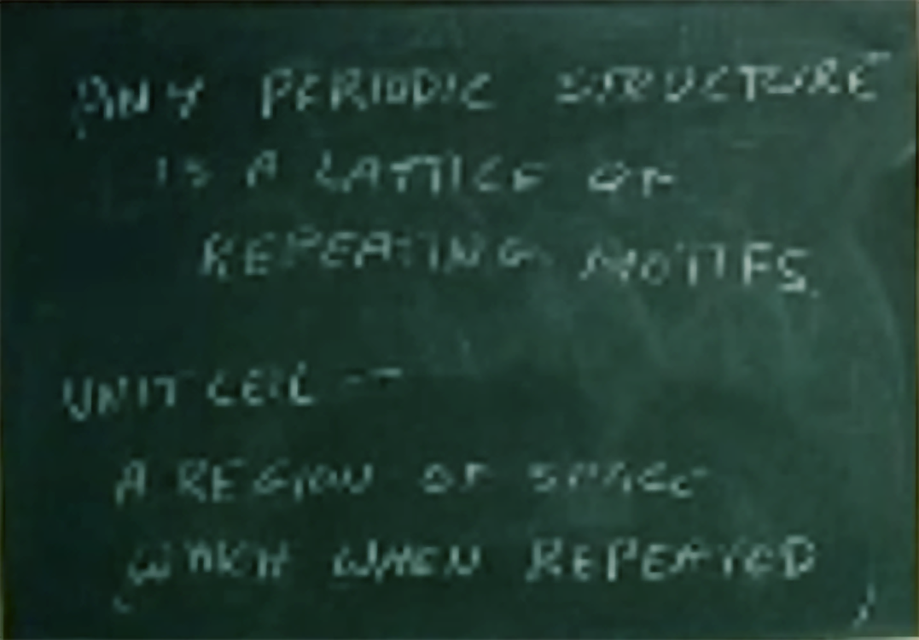 ANY PERIODIC STRUCTURE
IS A LATTICE OF
REPEATING MOTIFS.
UNIT CELL —
A REGION OF SPACE
WHICH WHEN REPEATED